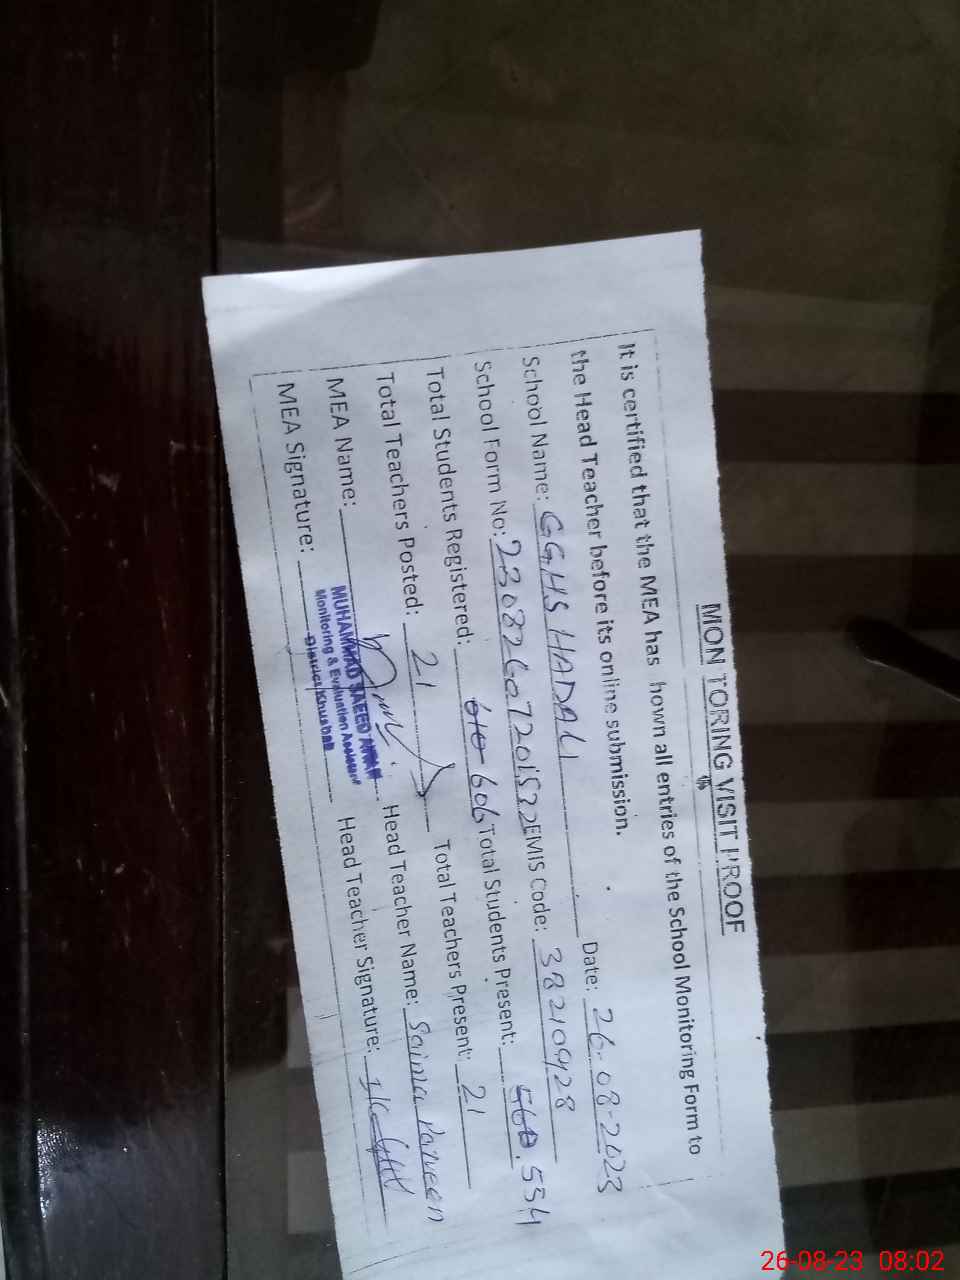 MONITORING VISIT PROOF
It is certified that the MEA has shown all entries of the School Monitoring Form to
the Head Teacher before its online submission.
School Name: GGHS HADALI Date: 26-08-2023
School Form No: 23082607201522 EMIS Code: 38210928
Total Students Registered: 610 606 Total Students Present: 560. 534
Total Teachers Posted: 21 Total Teachers Present: 21
MEA Name: MUHAMMAD SAEED AWAN Head Teacher Name: Saima Parveen
Monitoring & Evaluation Assistant
District Khushab
MEA Signature: Head Teacher Signature:
26-08-23 08:02